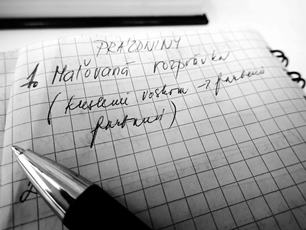 PRÁZDNINY
1. Maľovaná rozprávka
(kreslenie voskom → farbenie
farbami)